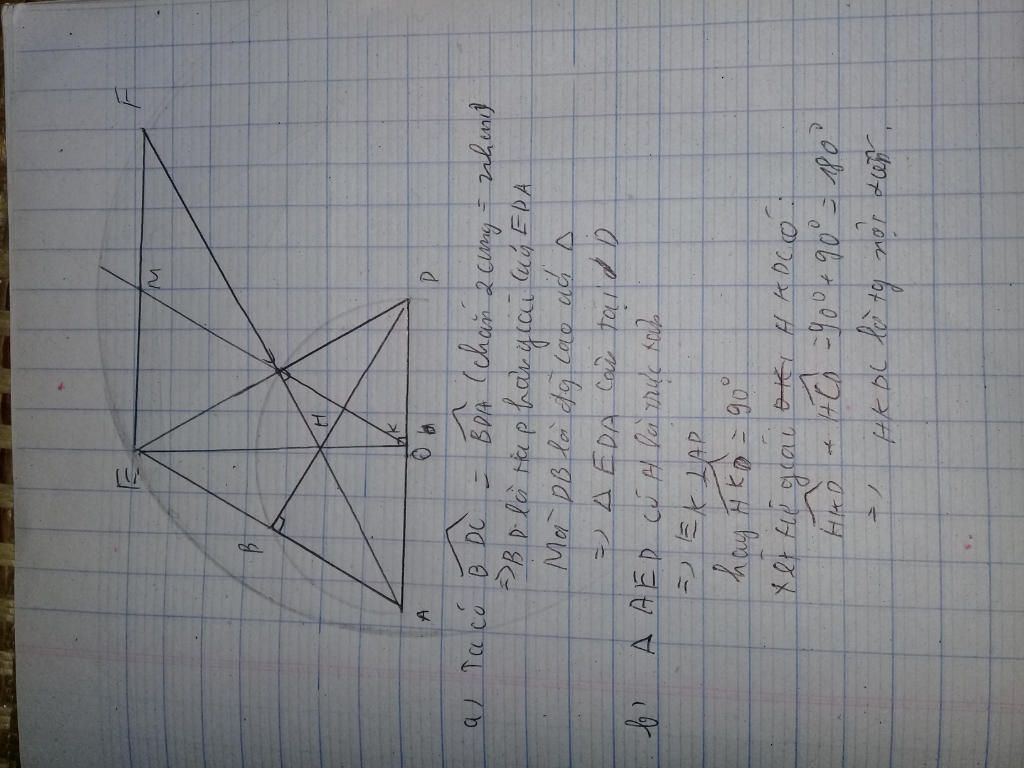 E
F
M
B
C
H
K
O
A
D
a) Ta có BDC = BDA (chắn 2 cung = nhau)
=> BD là tia phân giác của EDA
Mà DB là đg cao của Δ
=> Δ EDA cân tại D
b) Δ AED có H là trực tâm
=> EK ⊥ AD
hay HKD = 90°
Xét tứ giác HKDC có:
HKD + HCD = 90° + 90° = 180°
=> HKDC là tg nội tiếp.